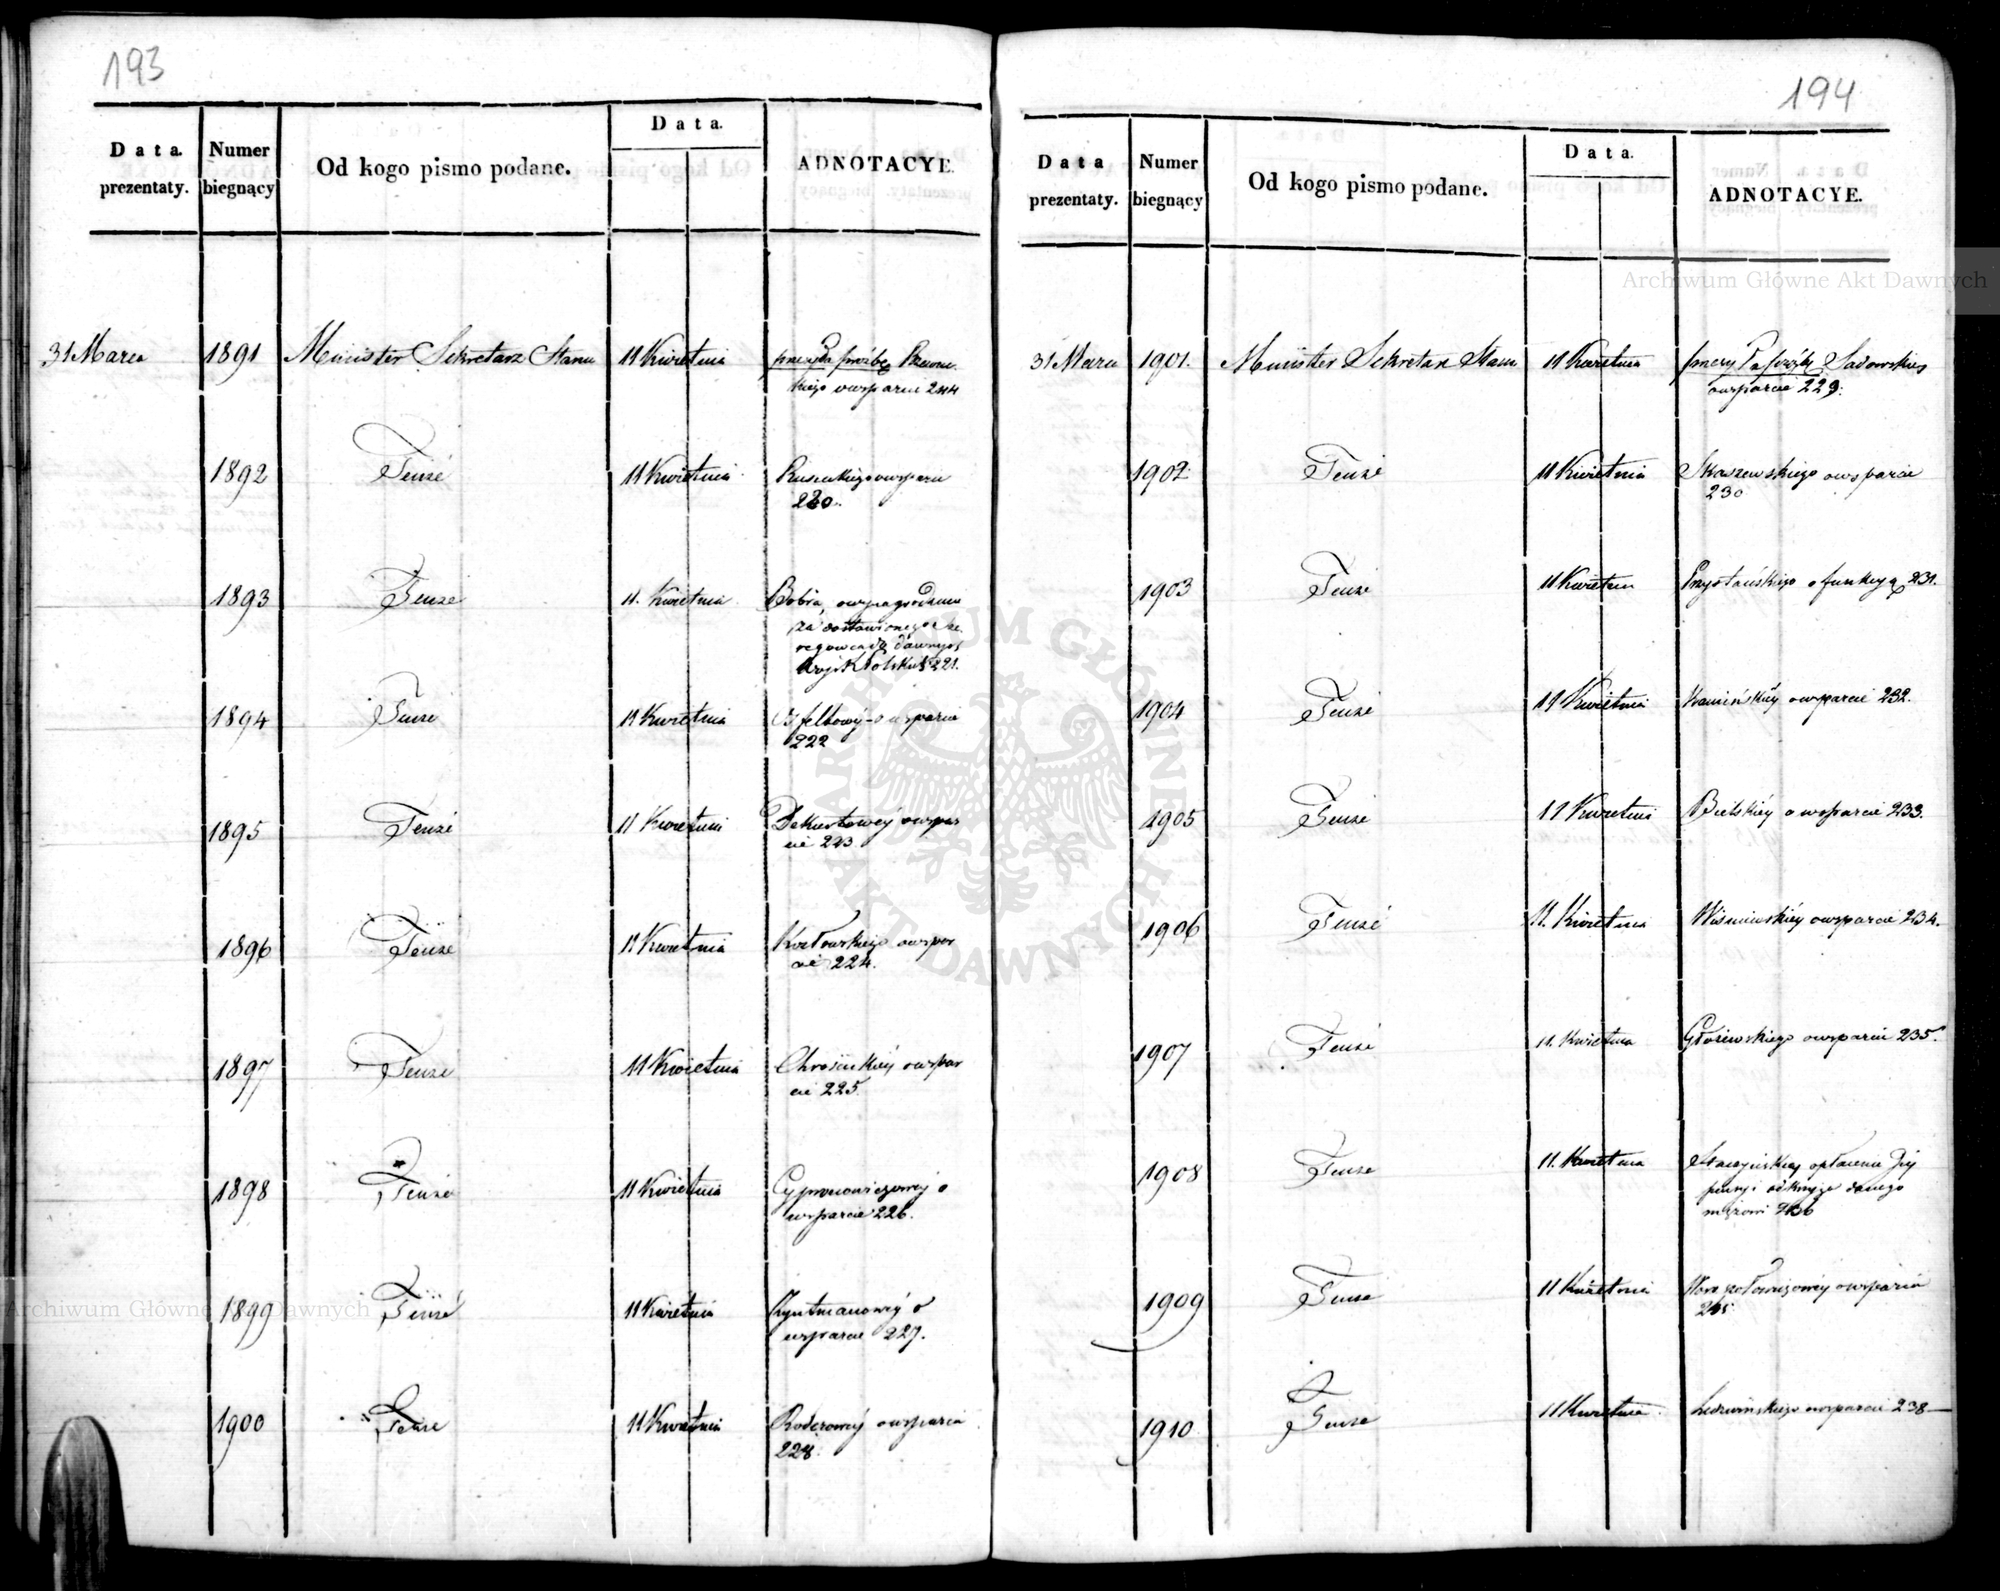 193
Data prezentaty. Numer biegnący Od kogo pismo podane. Data. ADNOTACYE.
31 Marca 1891 Minister Sekretarz Stanu 11 Kwietnia przesyła prośbę
kiego o wsparcie 214
1892 Tenże 11 Kwietnia o wsparcie
220.
1893 Tenże 11. Kwietnia Bobra, o wynagrodzenie
za dostawionego
dawnych
Wojsk Polskich 221.
1894 Tenże 11 Kwietnia o wsparcie
222
1895 Tenże 11 Kwietnia Dekertowéy o wspar
cie 223.
1896 Tenże 11 Kwietnia Kozłowskiego o wspar
cie 224.
1897 Tenże 11 Kwietnia Chrosińskiéy o wspar
cie 225.
1898 Tenże 11 Kwietnia Cypronowiczowéy o
wsparcie 226.
1899 Tenże 11 Kwietnia o
wsparcie 227.
1900 Tenże 11 Kwietnia Roderowéy o wsparcie
228.
194
Data prezentaty. Numer biegnący Od kogo pismo podane. Data. ADNOTACYE.
31 Marca 1901. Minister Sekretarz Stanu 11 Kwietnia przesyła prośbę Sadowskiéy
o wsparcie 229.
1902 Tenże 11 Kwietnia Skaszewskiego o wsparcie
230
1903 Tenże 11 Kwietnia Przystańskiego o funkcyą 231.
1904 Tenże 11 Kwietnia Kamińskiéy o wsparcie 232.
1905 Tenże 11 Kwietnia Bielskiéy o wsparcie 233.
1906 Tenże 11. Kwietnia Wiśniewskiéy o wsparcie 234.
1907 Tenże 11. Kwietnia Głosiewskiego o wsparcie 235.
1908 Tenże 11. Kwietnia
danego
mężowi 236
1909 Tenże 11 Kwietnia o wsparcie
1910 Tenże 11 Kwietnia Ledwińskiego o wsparcie 238
Archiwum Główne Akt Dawnych
ARCHIWUM GŁÓWNE AKT DAWNYCH
Archiwum Główne Akt Dawnych